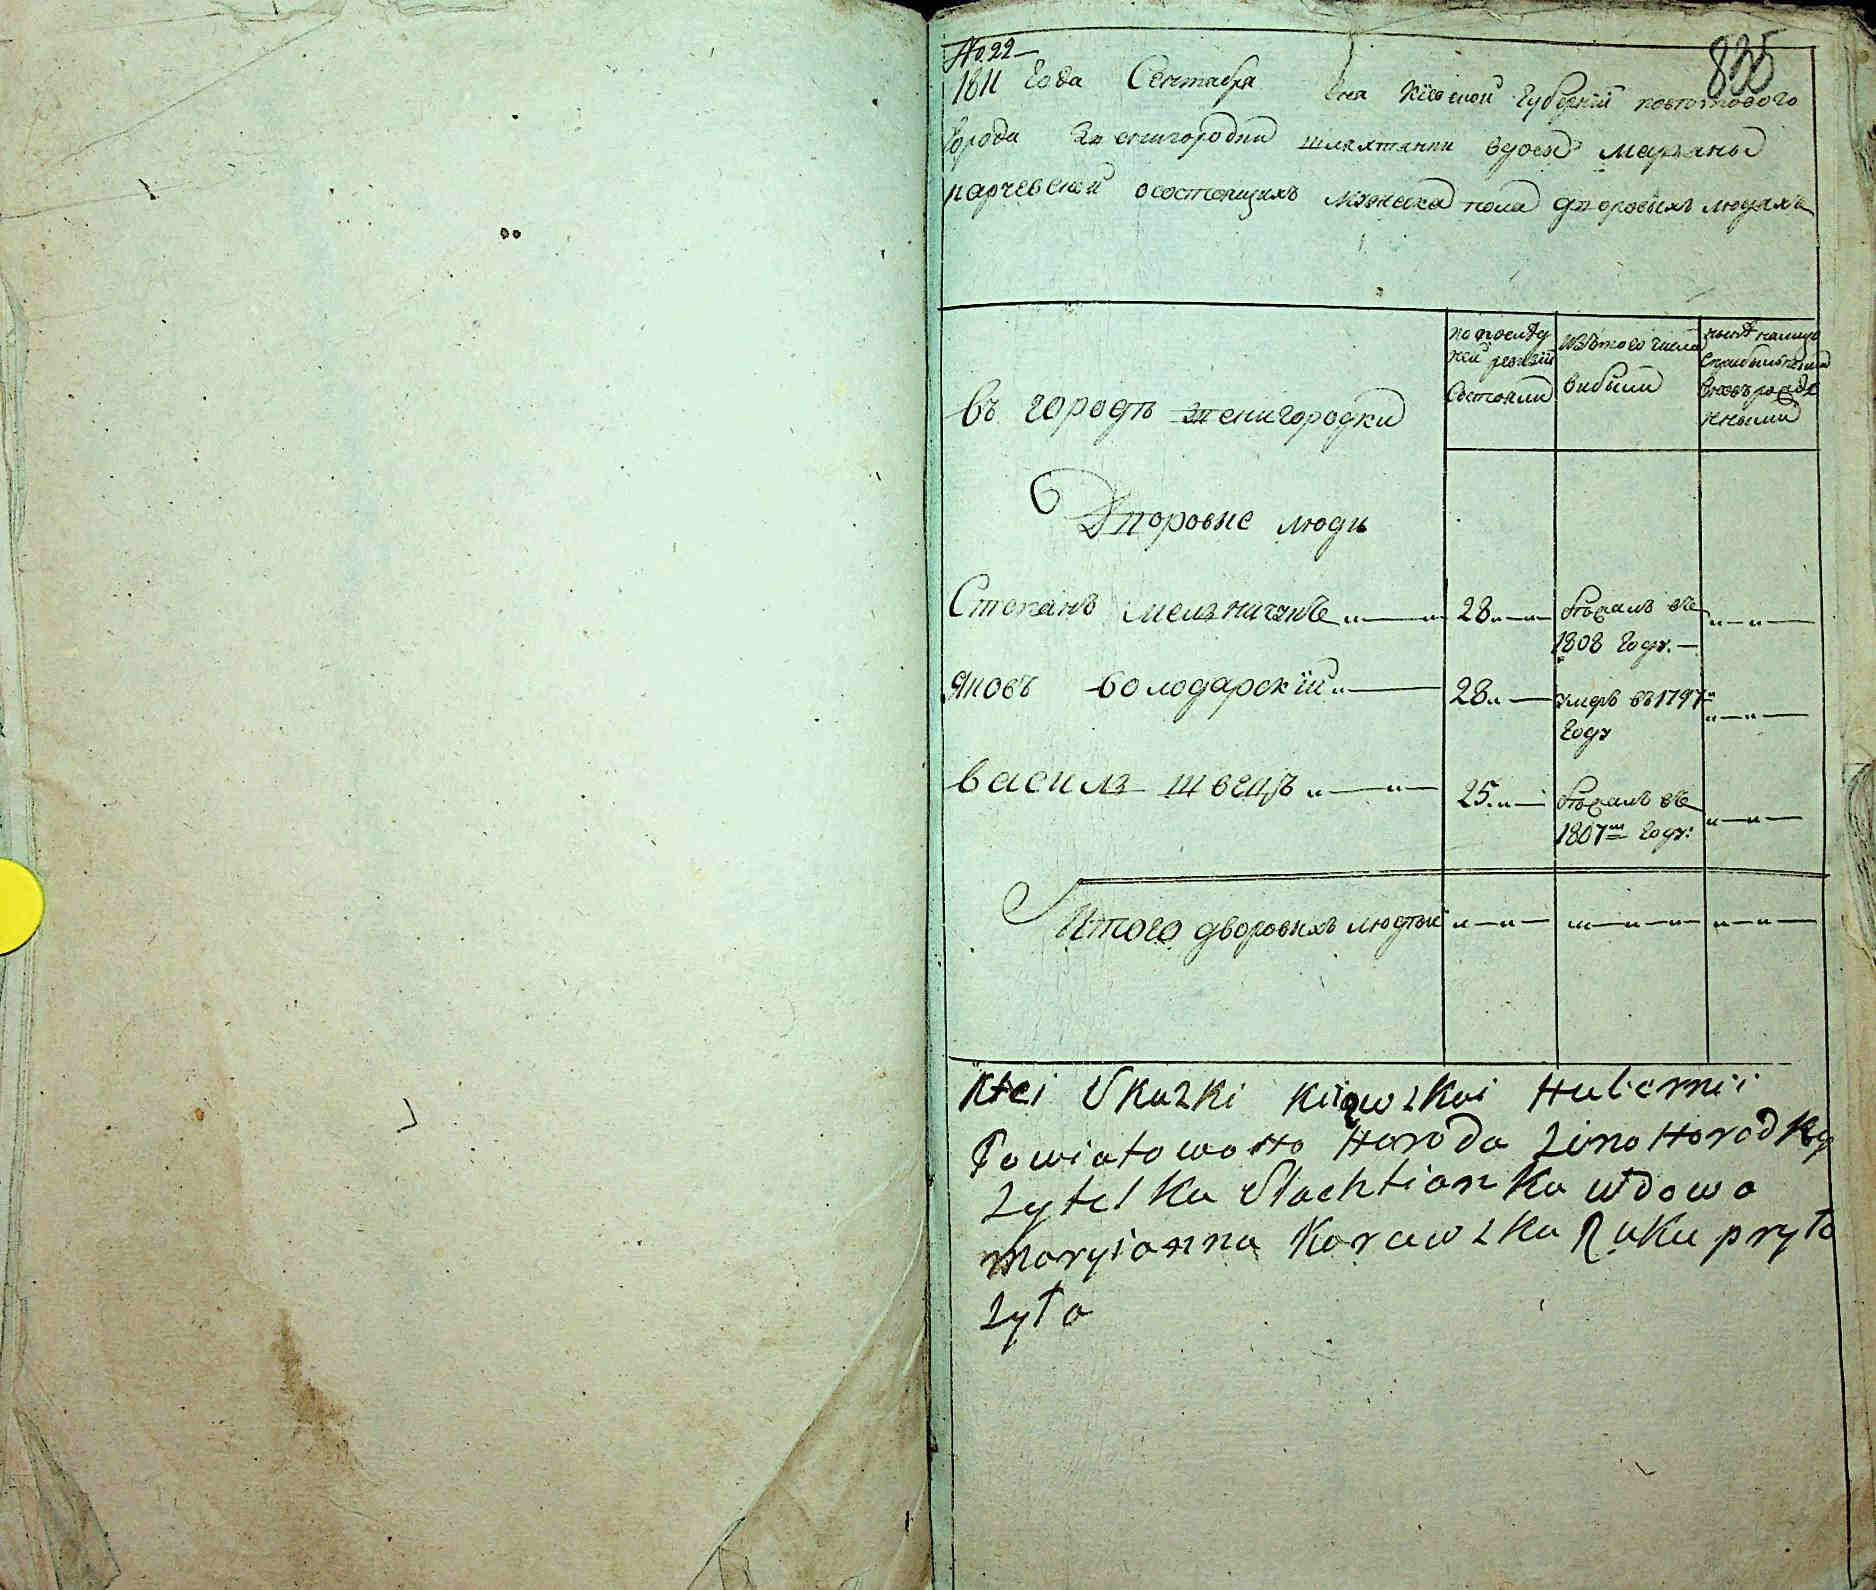 No. 22
835
1811 Года Сентября дня Кіевской Губерніи повѣтового
города Звенигородки шляхтянки вдовы Марьяны
карчевской осостоящихъ мужеска пола дворовыхъ людяхъ
въ городѣ звенигородки
по послѣд
ней ревизіи
состояли
изътого числа
выбыли
нынѣ налицо
сприбылыми
вновърожде
нными
Дворовые люди
Степанъ мельничукъ 28 бѣжалъ въ
1808 Году.
Яковъ володарскій 28 умеръ въ 1797
Году
василь швецъ 25 бѣжалъ въ
1807м Году:
Итого дворовыхъ людѣй
Ktei Skazki Kiiewzkoi Hubernii
Powiatowoho Horoda zwnohorodky
zytelka Slachtianka wdowa
maryianna Karcewzka Ruku pryło
zyła